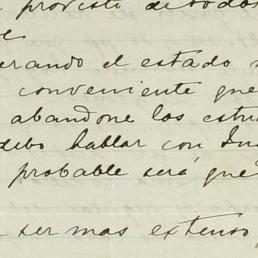 provisto de todos
e
erando el estado
conveniente que
abandone los estu
debo hablar con Jua
probable será que
ser mas extenso,